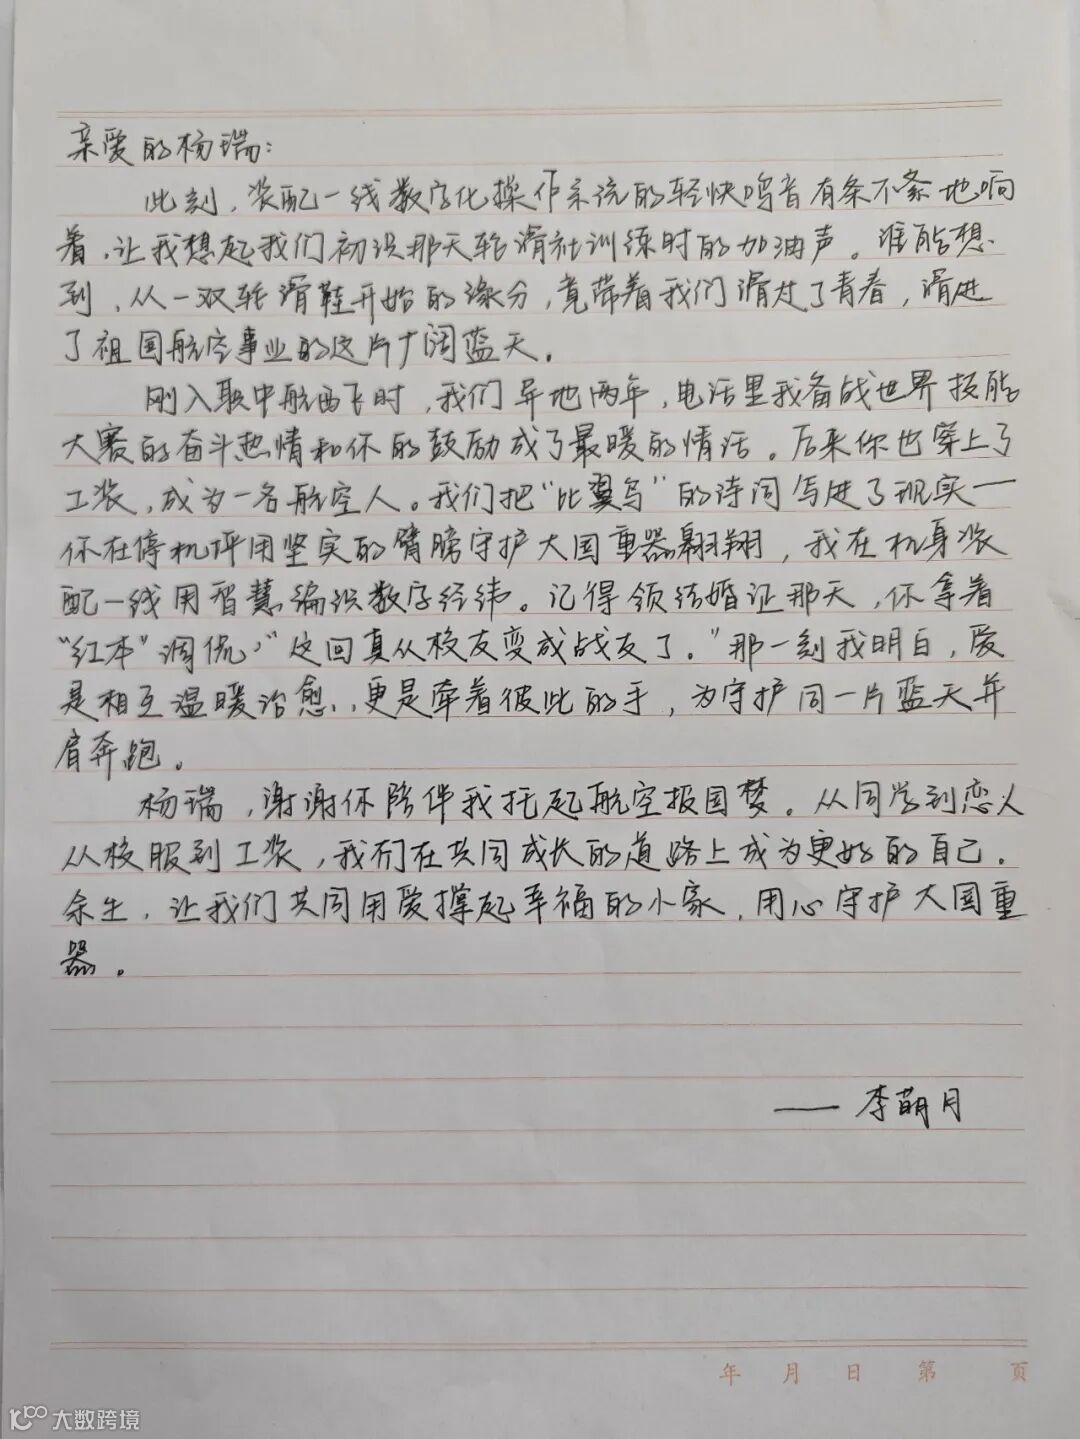 亲爱的杨瑞：
此刻，装配一线数字化操作系统的轻快鸣音有条不紊地响
着，让我想起我们初识那天轮滑社训练时的加油声。谁能想
到，从一双轮滑鞋开始的缘分，竟带着我们滑过了青春，滑进
了祖国航空事业的这片广阔蓝天。
刚入职中航西飞时，我们异地两年，电话里我备战世界技能
大赛的奋斗热情和你的鼓励成了最暖的情话。后来你也穿上了
工装，成为一名航空人。我们把“比翼鸟”的诗词写进了现实——
你在停机坪用坚实的臂膀守护大国重器翱翔，我在机身装
配一线用智慧编织数字经纬。记得领结婚证那天，你拿着
“红本”调侃：“这回真从校友变成战友了。”那一刻我明白，爱
是相互温暖治愈，更是牵着彼此的手，为守护同一片蓝天并
肩奔跑。
杨瑞，谢谢你陪伴我托起航空报国梦。从同学到恋人
从校服到工装，我们在共同成长的道路上成为更好的自己。
余生，让我们共同用爱撑起幸福的小家，用心守护大国重
器。
——李萌月
年 月 日 第 页
大数跨境